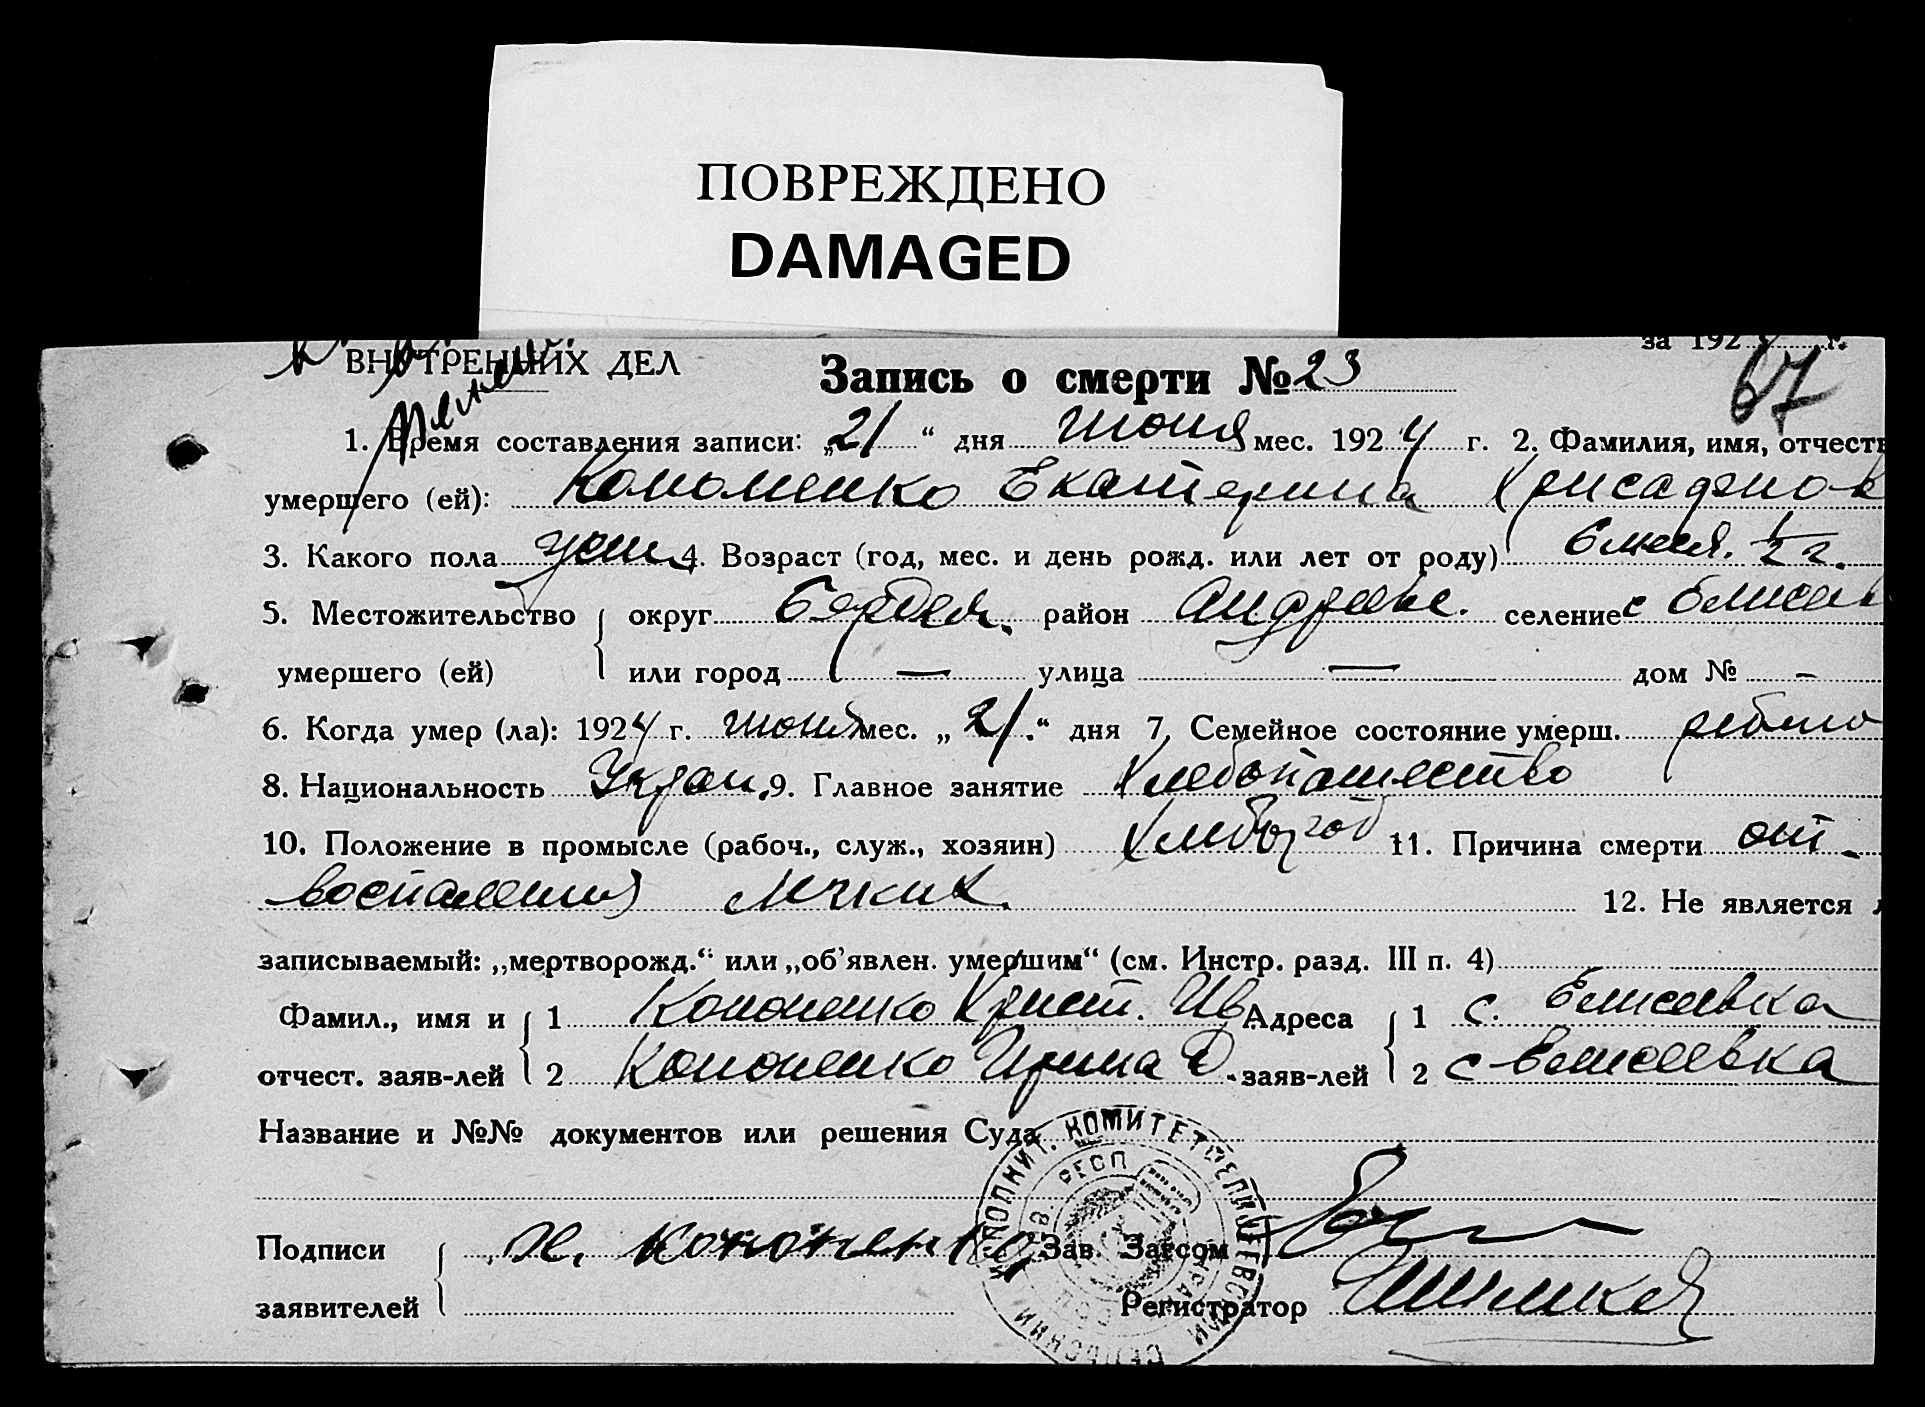 ПОВРЕЖДЕНО
DAMAGED
за 192 г.
ВНУТРЕННИХ ДЕЛ
Запись о смерти № 23
67
1. Время составления записи: „21“ дня июня мес. 1924 г. 2. Фамилия, имя, отчеств
умершего (ей): Кононенко Екатерина
3. Какого пола жен. 4. Возраст (год, мес. и день рожд. или лет от роду) 6 мися. 1/2 г.
5. Местожительство округ Бердян. район Андреевс. селение с Елисев
умершего (ей) или город — улица — дом № –
6. Когда умер (ла): 1924 г. июня мес. „21.“ дня 7. Семейное состояние умерш. ребіно
8. Национальность Украи. 9. Главное занятие Хлебопашество
10. Положение в промысле (рабоч., служ., хозяин) 11. Причина смерти от
воспаления лечких. 12. Не является л
записываемый: „мертворожд.“ или „об’явлен. умершим“ (см. Инстр. разд. III п. 4)
Фамил., имя и 1 Кононенко Крист. Ив. Адреса 1 с. Елисевка
отчест. заяв-лей 2 Кононенко Ирина Д. заяв-лей 2 с Елисевка
Название и №№ документов или решения Суда
Подписи Х. Кононенко Зав. Загсом
заявителей Регистратор